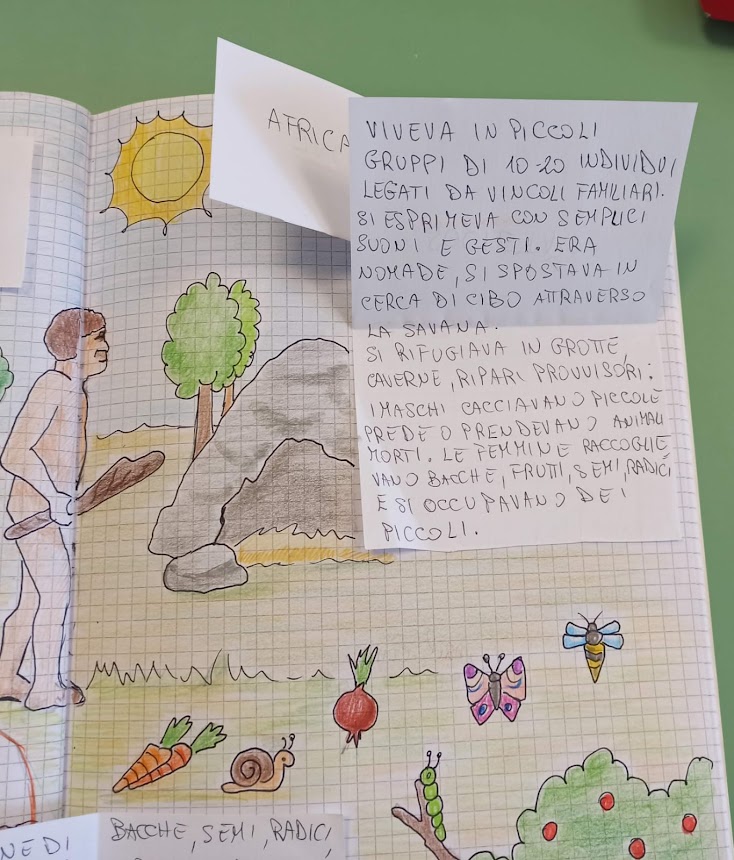 AFRICA
VIVEVA IN PICCOLI
GRUPPI DI 10-20 INDIVIDUI
LEGATI DA VINCOLI FAMILIARI.
SI ESPRIMEVA CON SEMPLICI
SUONI E GESTI. ERA
NOMADE, SI SPOSTAVA IN
CERCA DI CIBO ATTRAVERSO
LA SAVANA.
SI RIFUGIAVA IN GROTTE,
CAVERNE, RIPARI PROVVISORI.
I MASCHI CACCIAVANO PICCOLE
PREDE O PRENDEVANO ANIMALI
MORTI. LE FEMMINE RACCOGLIE
VANO BACCHE, FRUTTI, SEMI, RADICI
E SI OCCUPAVANO DEI
PICCOLI.
NE DI
BACCHE, SEMI, RADICI